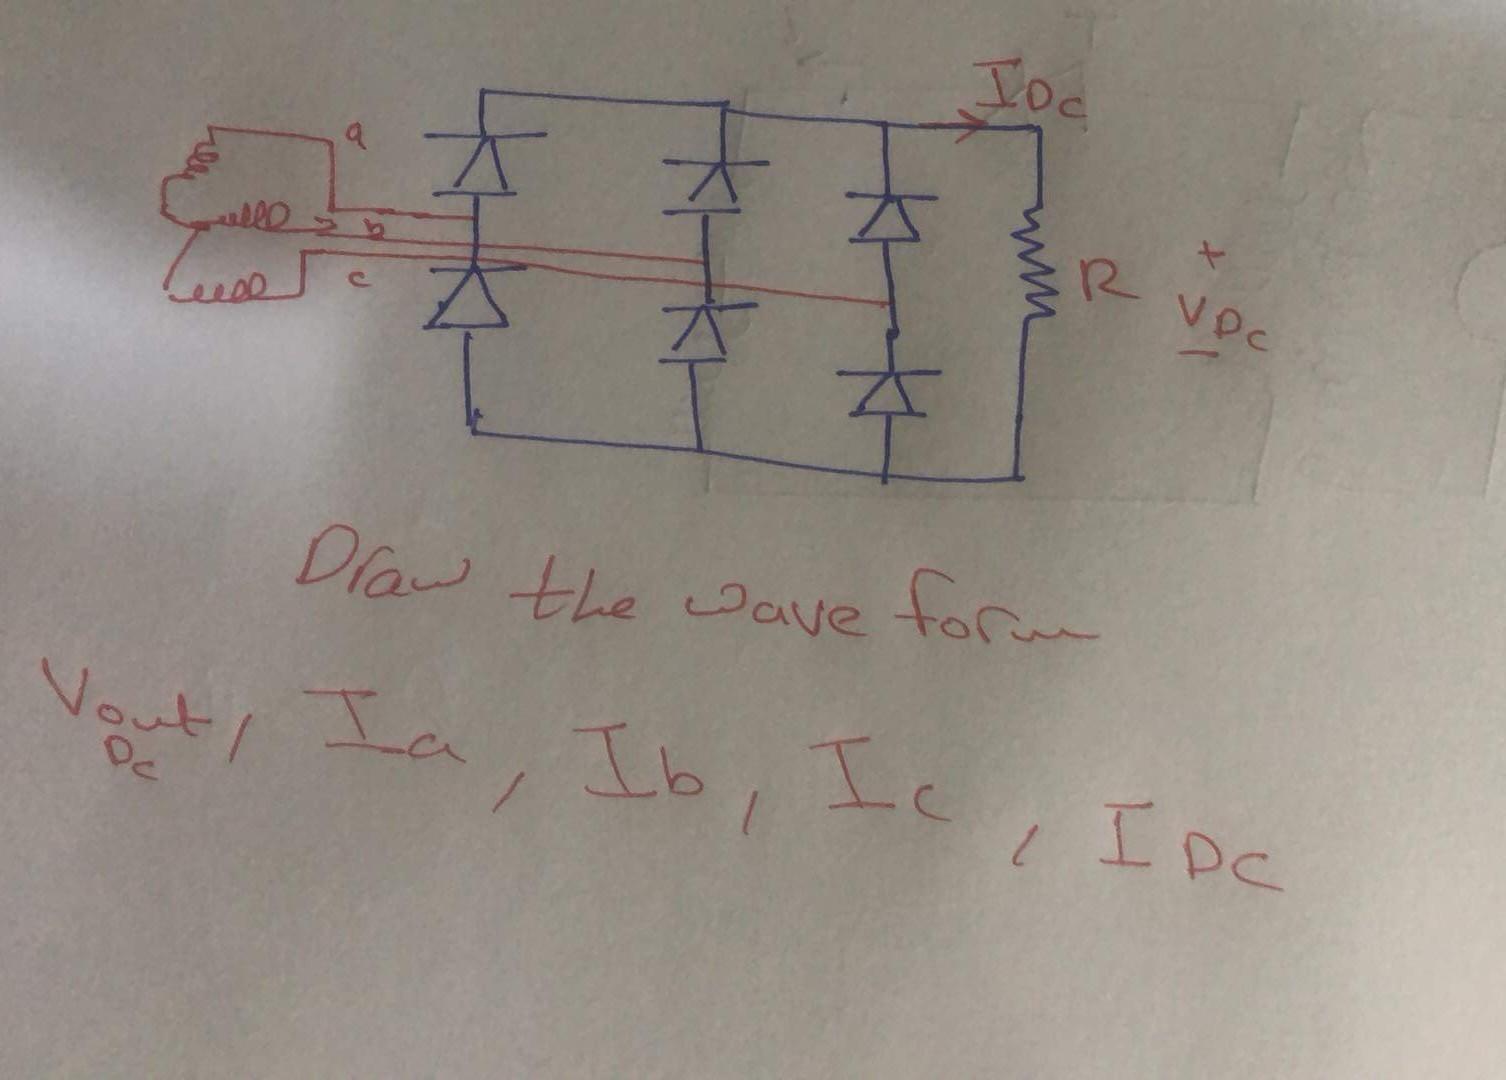 I DC
a
b
c
+
R
V DC
-
Draw the wave form
Vout DC, Ia, Ib, Ic, I DC